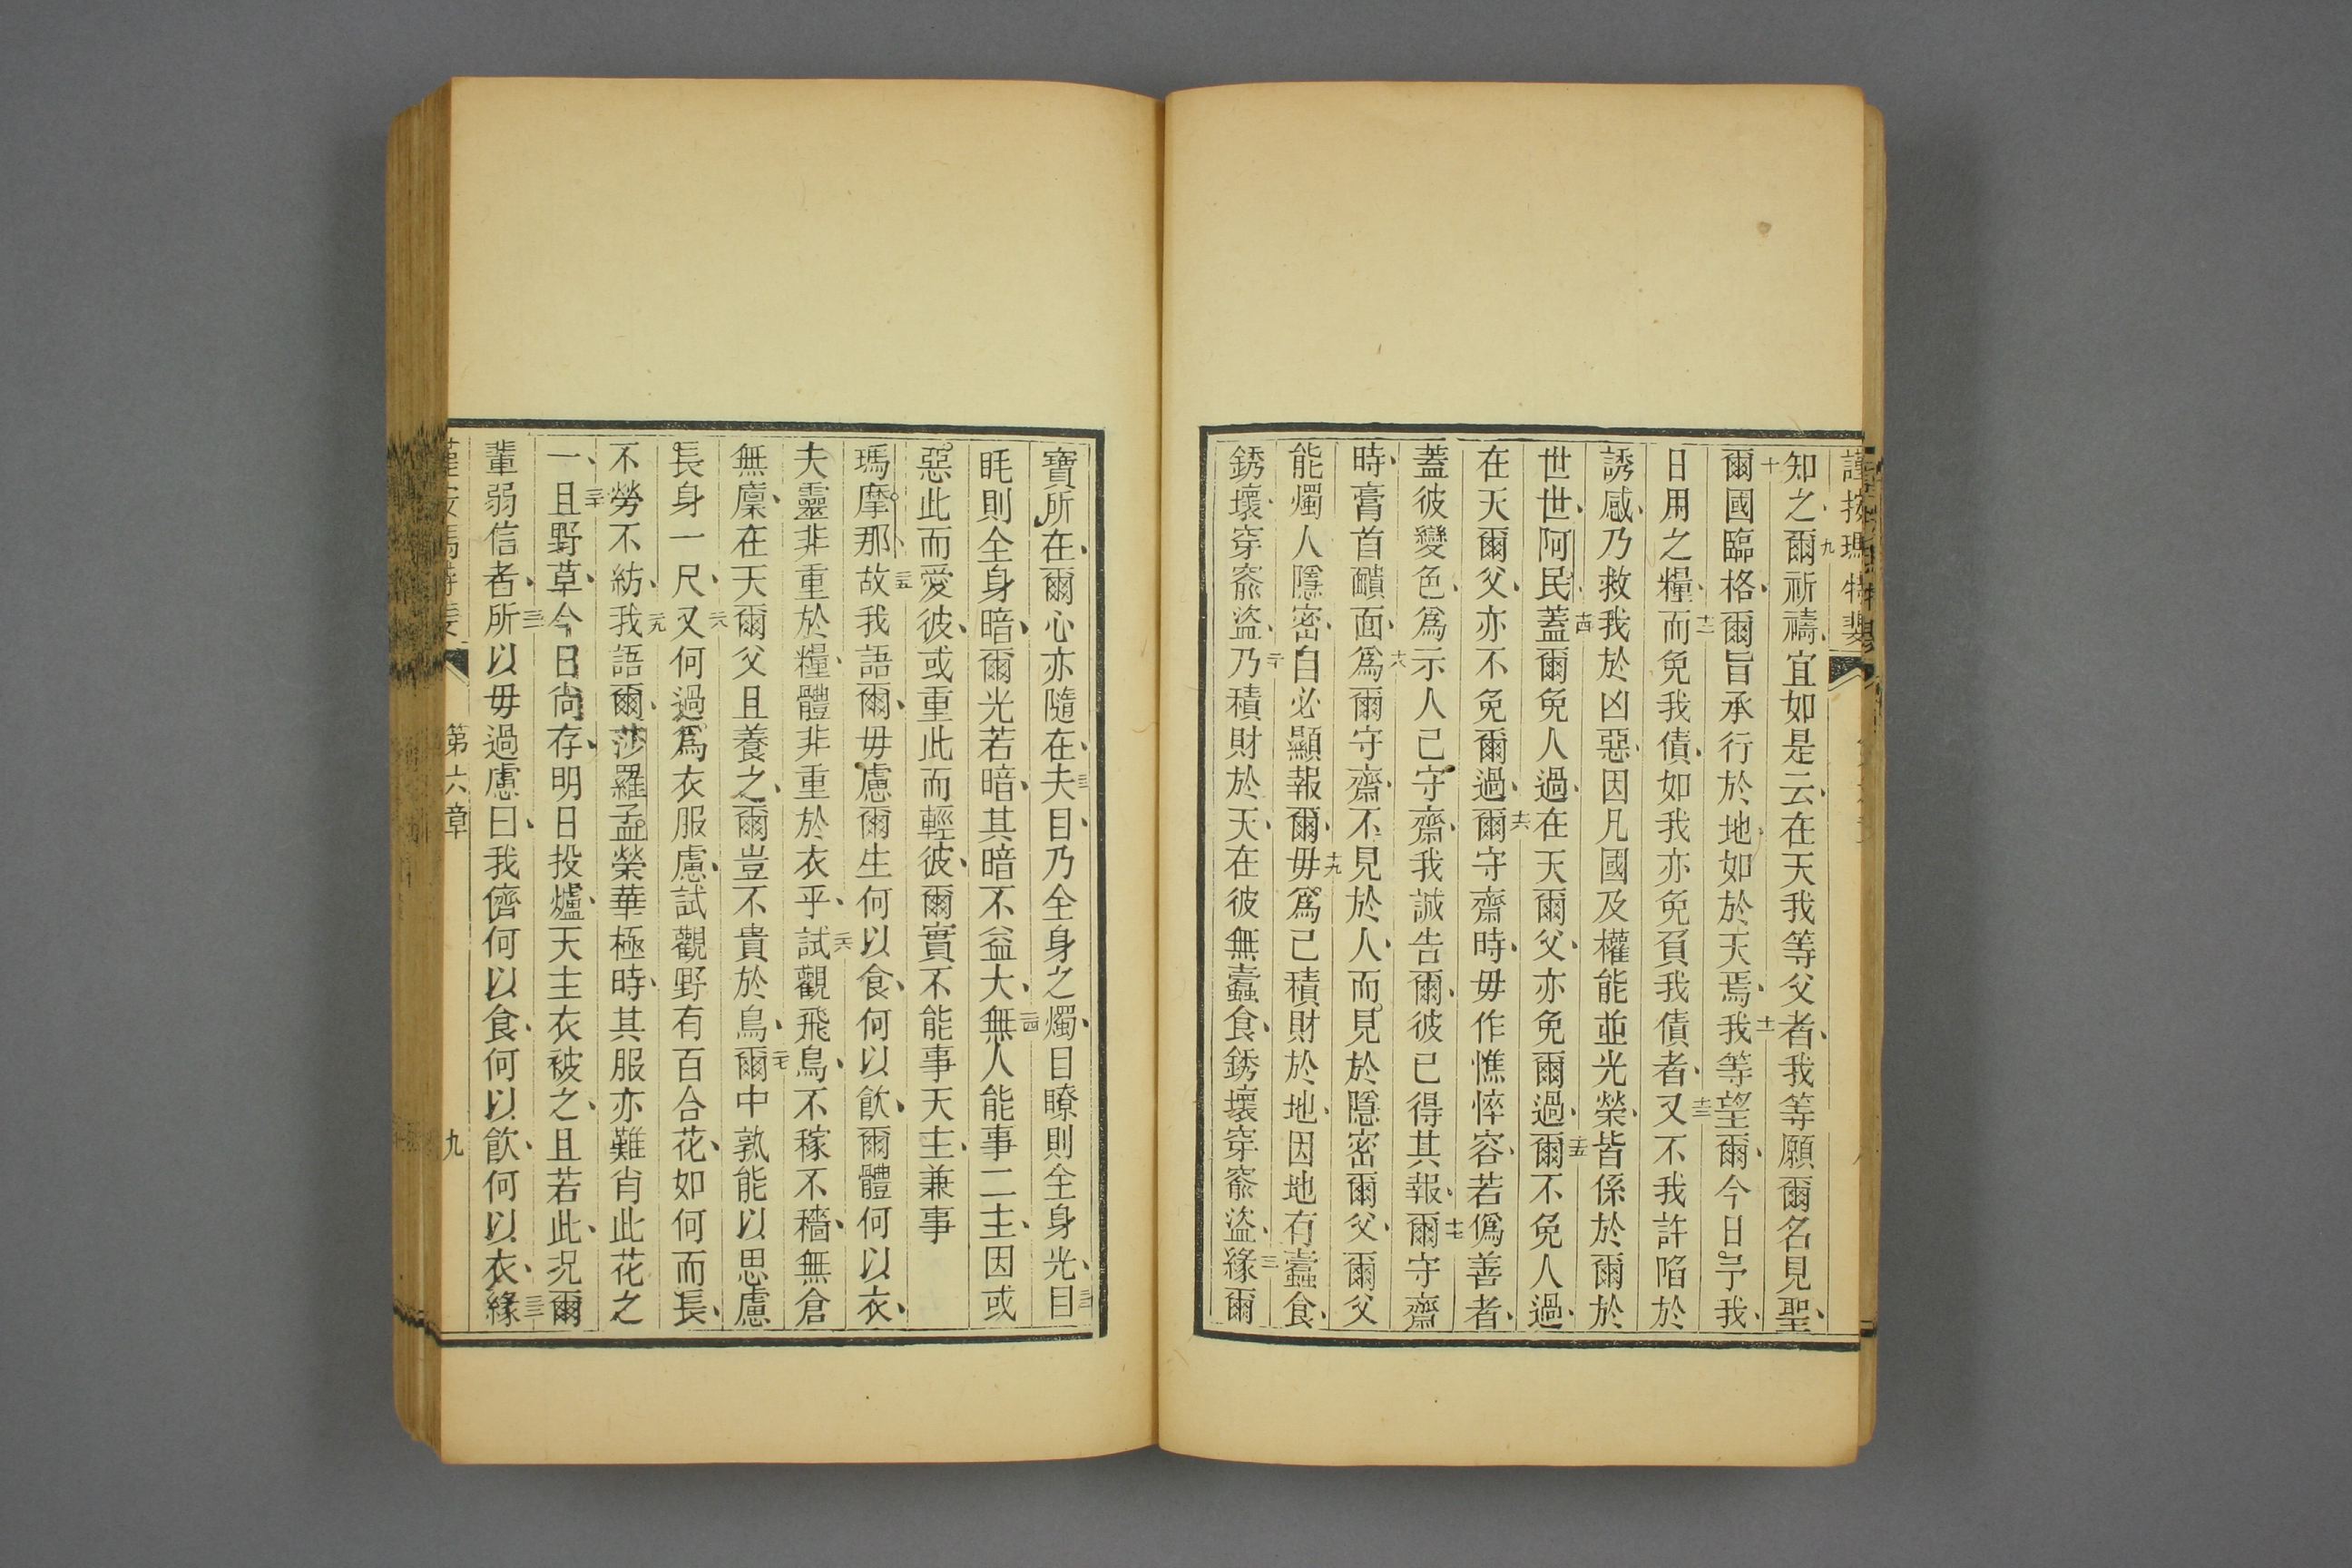 謹按瑪特斐
知之、九爾祈禱、宜如是云、在天我等父者、我等願爾名見聖、
十爾國臨格、爾旨承行於地、如於天焉、十一我等望爾、今日予我、
日用之糧、十二而免我債、如我亦免負我債者、十三又不我許陷於
誘感、乃救我於凶惡、因凡國及權能並光榮、皆係於爾、於
世世、阿民、十四蓋爾免人過、在天爾父、亦免爾過、十五爾不免人過、
在天爾父、亦不免爾過、十六爾守齋時、毋作憔悴容、若僞善者、
蓋彼變色、爲示人己守齋、我誠告爾、彼已得其報、十七爾守齋
時、膏首靧面、十八爲爾守齋、不見於人、而見於隱密爾父、爾父
能燭人隱密、自必顯報爾、十九毋爲己積財於地、因地有蠹食、
銹壞、穿窬盜、二十乃積財於天、在彼無蠹食、銹壞穿窬盜、二一緣爾
寶所在、爾心亦隨在、二二夫目、乃全身之燭、目瞭則全身光、二三目
眊則全身暗、爾光若暗、其暗不益大、二四無人能事二主、因或
惡此而愛彼、或重此而輕彼、爾實不能事天主、兼事
瑪摩那、二五故我語爾、毋慮爾生何以食、何以飮、爾體何以衣、
夫靈非重於糧、體非重於衣乎、二六試觀飛鳥、不稼不穡、無倉
無廩、在天爾父且養之、爾豈不貴於鳥、二七爾中孰能以思慮
長身一尺、二八又何過爲衣服慮、試觀野有百合花、如何而長、
不勞不紡、二九我語爾、莎羅孟榮華極時、其服亦難肖此花之
一、三十且野草、今日尙存、明日投爐、天主衣被之、且若此、況爾
輩弱信者、三一所以毋過慮曰、我儕何以食、何以飮、何以衣、三二緣
第六章
九